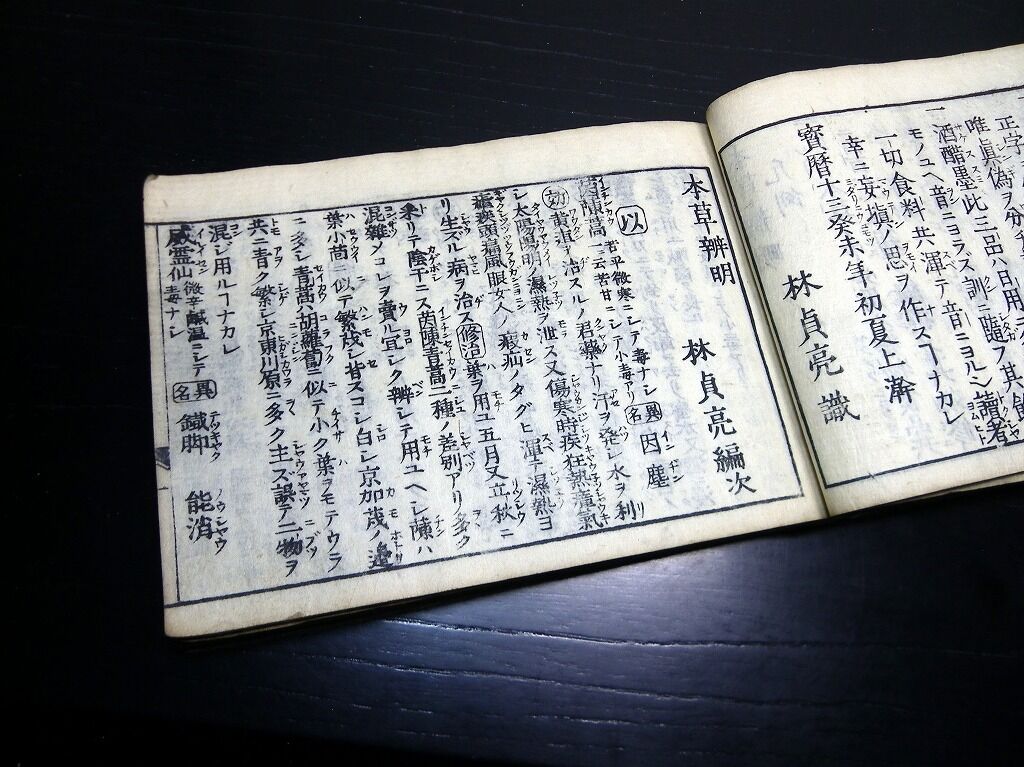 正字
唯眞偽ヲ分
酒酷墨此三品ハ日用
モノユヘ音ニヨラズ訓ニ隨フ其餘
一切食料共渾テ音ニヨルン讀者
幸ニ妄塡ノ思ヲ作スヿナカレ
寳暦十三癸未年初夏上澣
林貞亮識
本草辨明
林貞亮編次
以
茵蔯蒿 一云苦甘ニシテ小毒アリ 苦平微寒ニシテ毒ナシ 異名 因塵
効 黄疸ヲ治スルノ君藥ナリ汗ヲ発シ水ヲ利
シ太陽陽明ノ濕熱ヲ泄ス又傷寒時疾狂熱瘴氣
頭痛風眼女人ノ瘕疝ノタグヒ渾テ濕熱ヨ
リ生ズル病ヲ治ス 修治 葉ヲ用ユ五月又立秋ニ
釆リテ陰干ニス茵陳青蒿二種ノ差別アリ多ク
混雑ノコレヲ賣ル宜レク辨シテ用ユヘシ蔯ハ
葉小茴ニ似テ繁茂シ皆スコシ白シ京加茂ノ邊
ニ多シ青蒿ハ胡蘿蔔ニ似テ小ク葉ヲモテウラ
共ニ青ク繁シ京東川原ニ多ク生ズ誤テ二物ヲ
混ジ用ルヿナカレ
威霊仙 微辛鹹温ニシテ毒ナシ 異名 鐡脚 能消